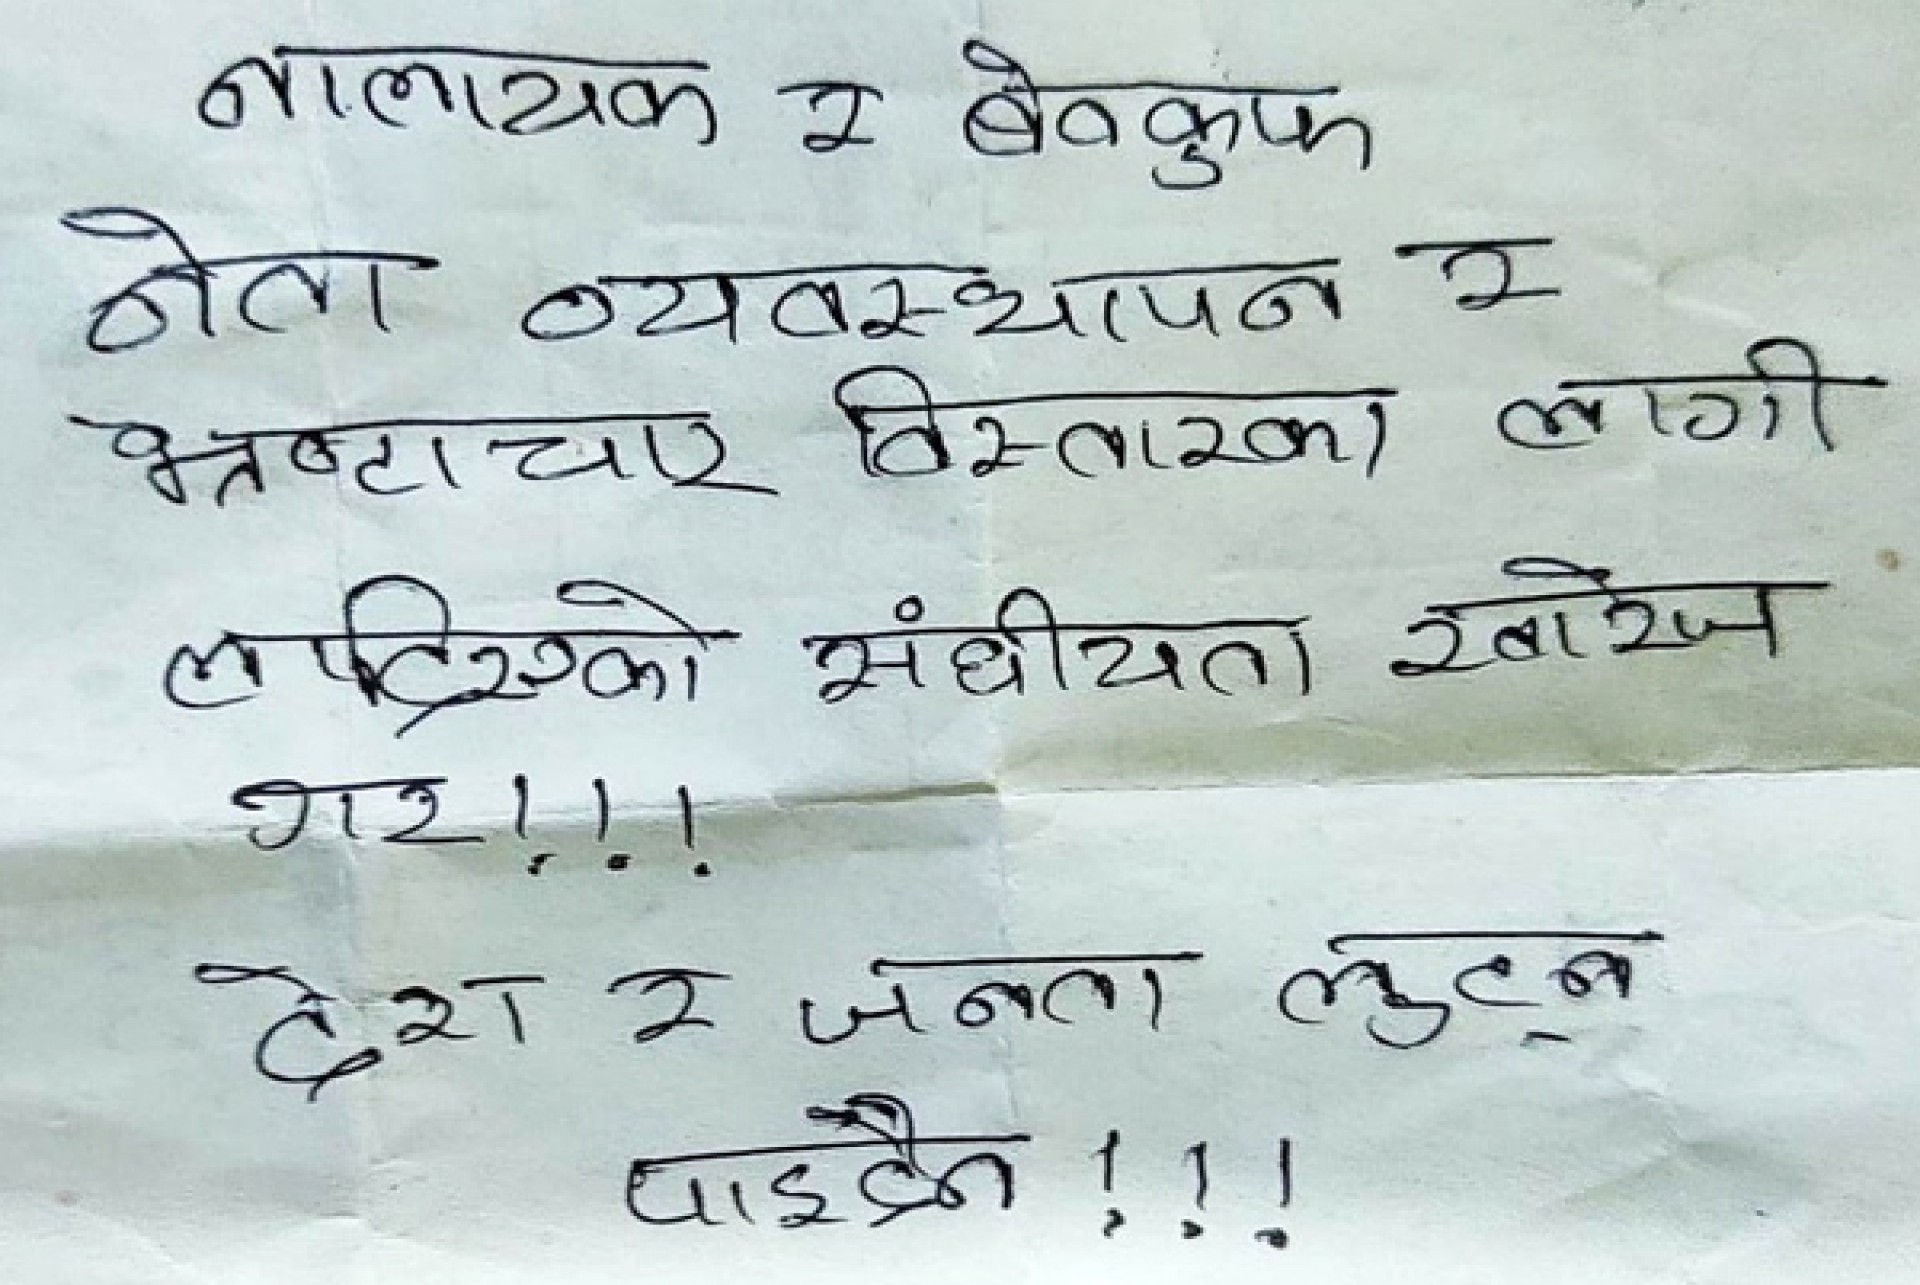 नालायक र बेवकुफ
नेता व्यवस्थापन र
भ्रष्टाचार विस्तारका लागी
संघीयता खारेज
गर!!!
देश र जनता लुट्न
पाइदैन!!!